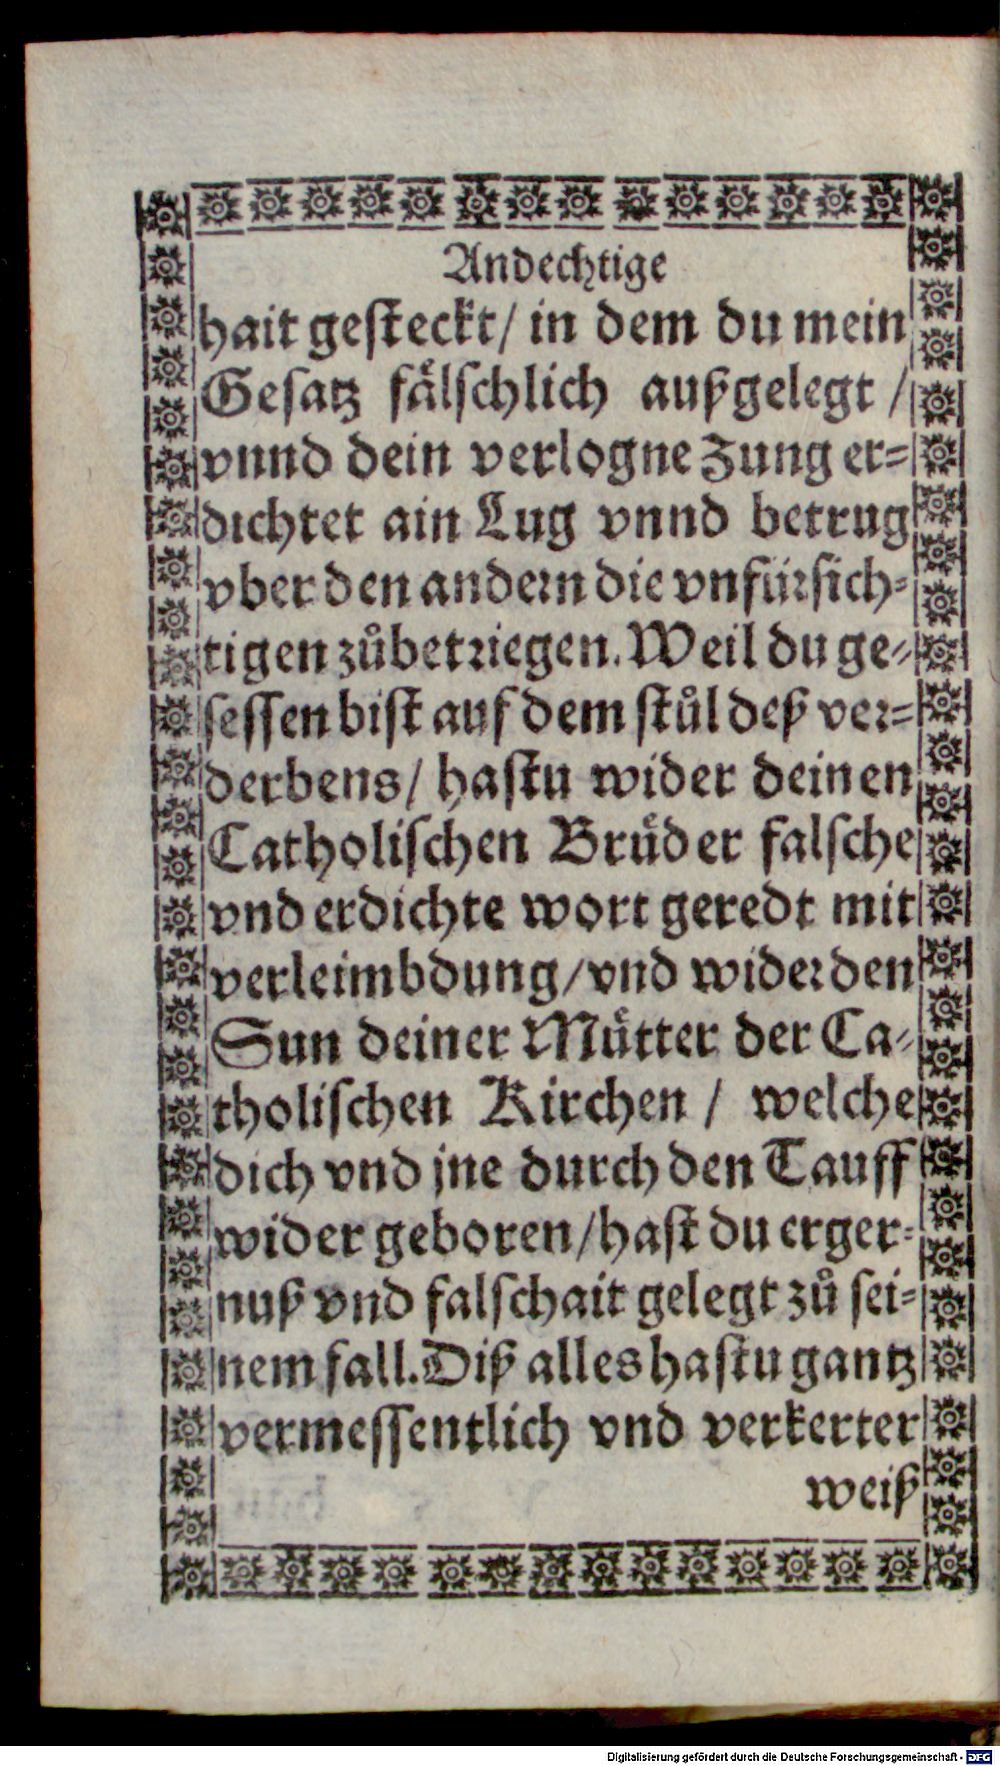 Andechtige
hait gesteckt/ in dem du mein
Gesatz fälschlich außgelegt /
vnnd dein verlogne Zung er-
dichtet ain Lug vnnd betrug
vber den andern die vnfürsich-
tigen zůbetriegen. Weil du ge-
sessen bist auf dem stůl deß ver-
derbens/ hastu wider deinen
Catholischen Brüder falsche
vnd erdichte wort geredt mit
verleimbdung/vnd wider den
Sun deiner Mütter der Ca-
tholischen Kirchen / welche
dich vnd jne durch den Tauff
wider geboren/hast du erger-
nuß vnd falschait gelegt zů sei-
nem fall. Diß alles hastu gantz
vermessentlich vnd verkerter
weiß
Digitalisierung gefördert durch die Deutsche Forschungsgemeinschaft - DFG